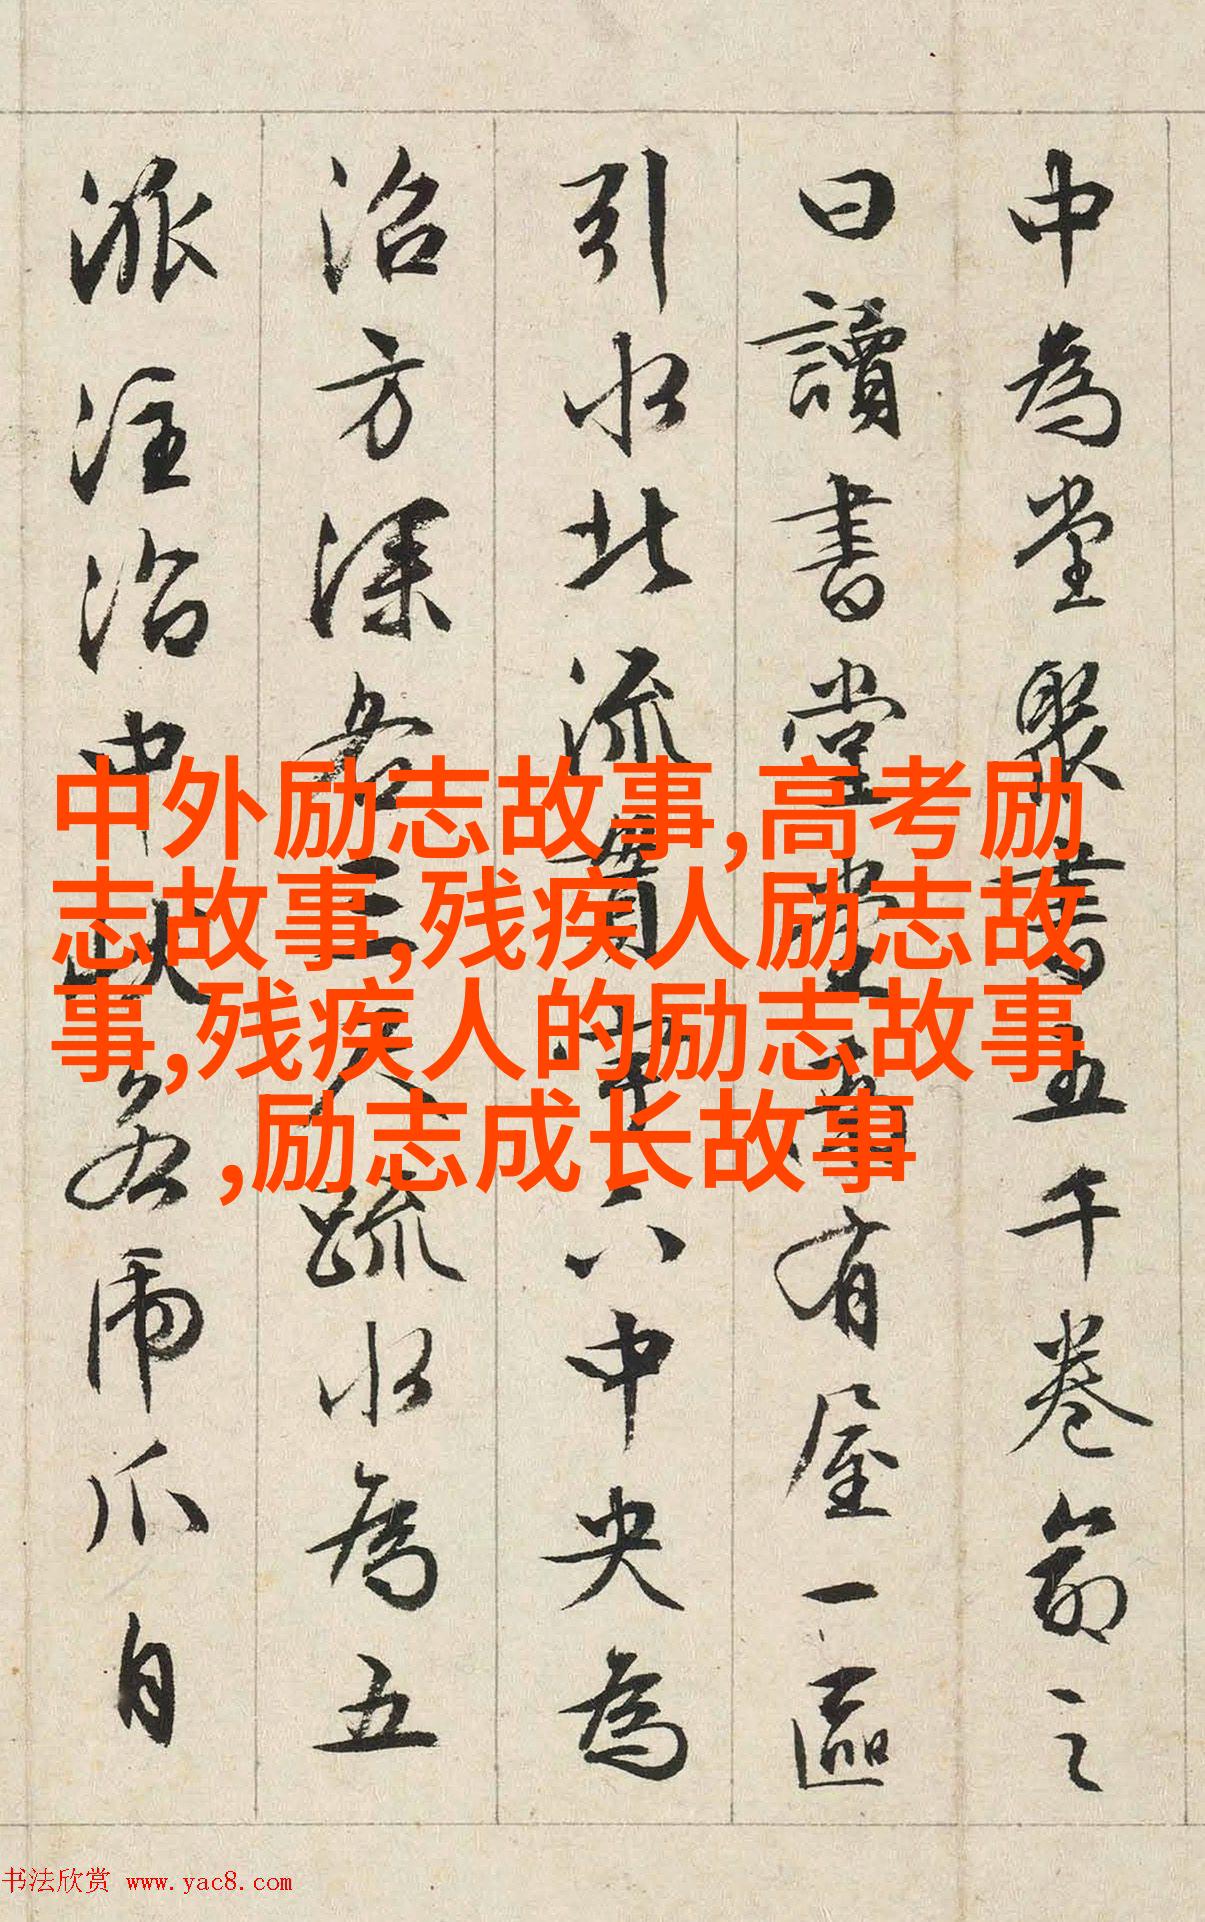 中為堂聚書五千卷命之
曰讀書堂堂南有屋一區
引水北流貫宇下中央為
沼方深各三尺疏水為五
派注沼中状若虎爪自
中外励志故事,高考励
志故事,残疾人励志故
事,残疾人的励志故事
,励志成长故事
书法欣赏 www.yac8.com